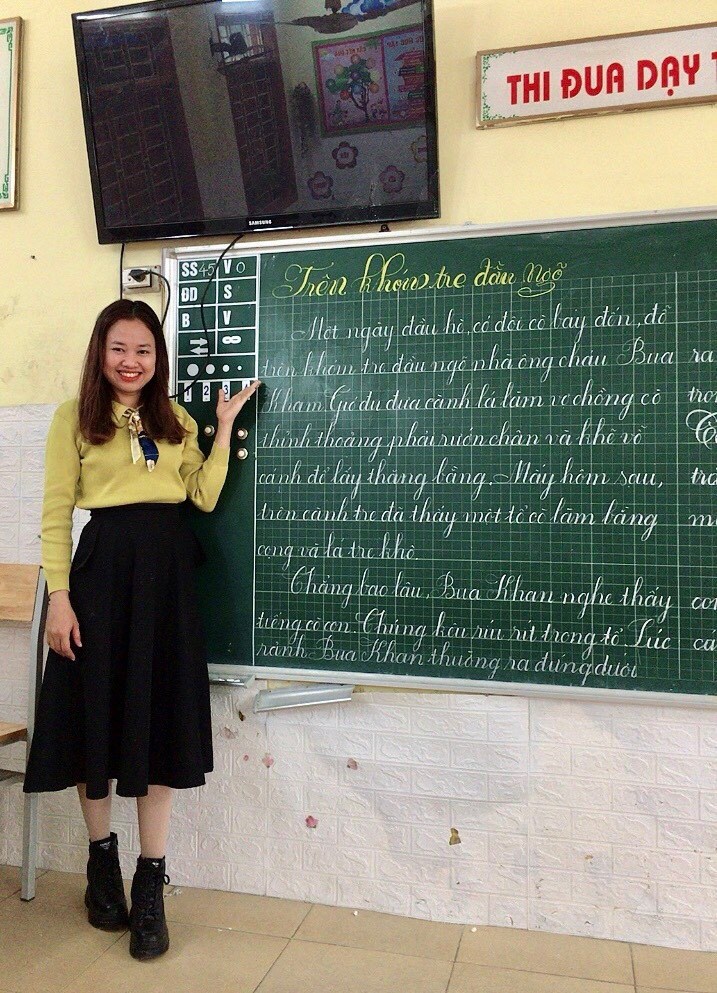 THI ĐUA DẠY
SAMSUNG
SS 45 V 0
ĐD S
B V
1 2 3 4
Trên khóm tre đầu ngõ
Một ngày đầu hè, có đôi cò bay đến, đỗ
trên khóm tre đầu ngõ nhà ông cháu Bua
Kham. Gió đu đưa cành lá làm vợ chồng cò
thỉnh thoảng phải rướn chân và khẽ vỗ
cánh để lấy thăng bằng. Mấy hôm sau,
trên cành tre đã thấy một tổ cò làm bằng
cọng và lá tre khô.
Chẳng bao lâu, Bua Khan nghe thấy
tiếng cò con. Chúng kêu ríu rít trong tổ. Lúc
rảnh Bua Khan thường ra đứng dưới